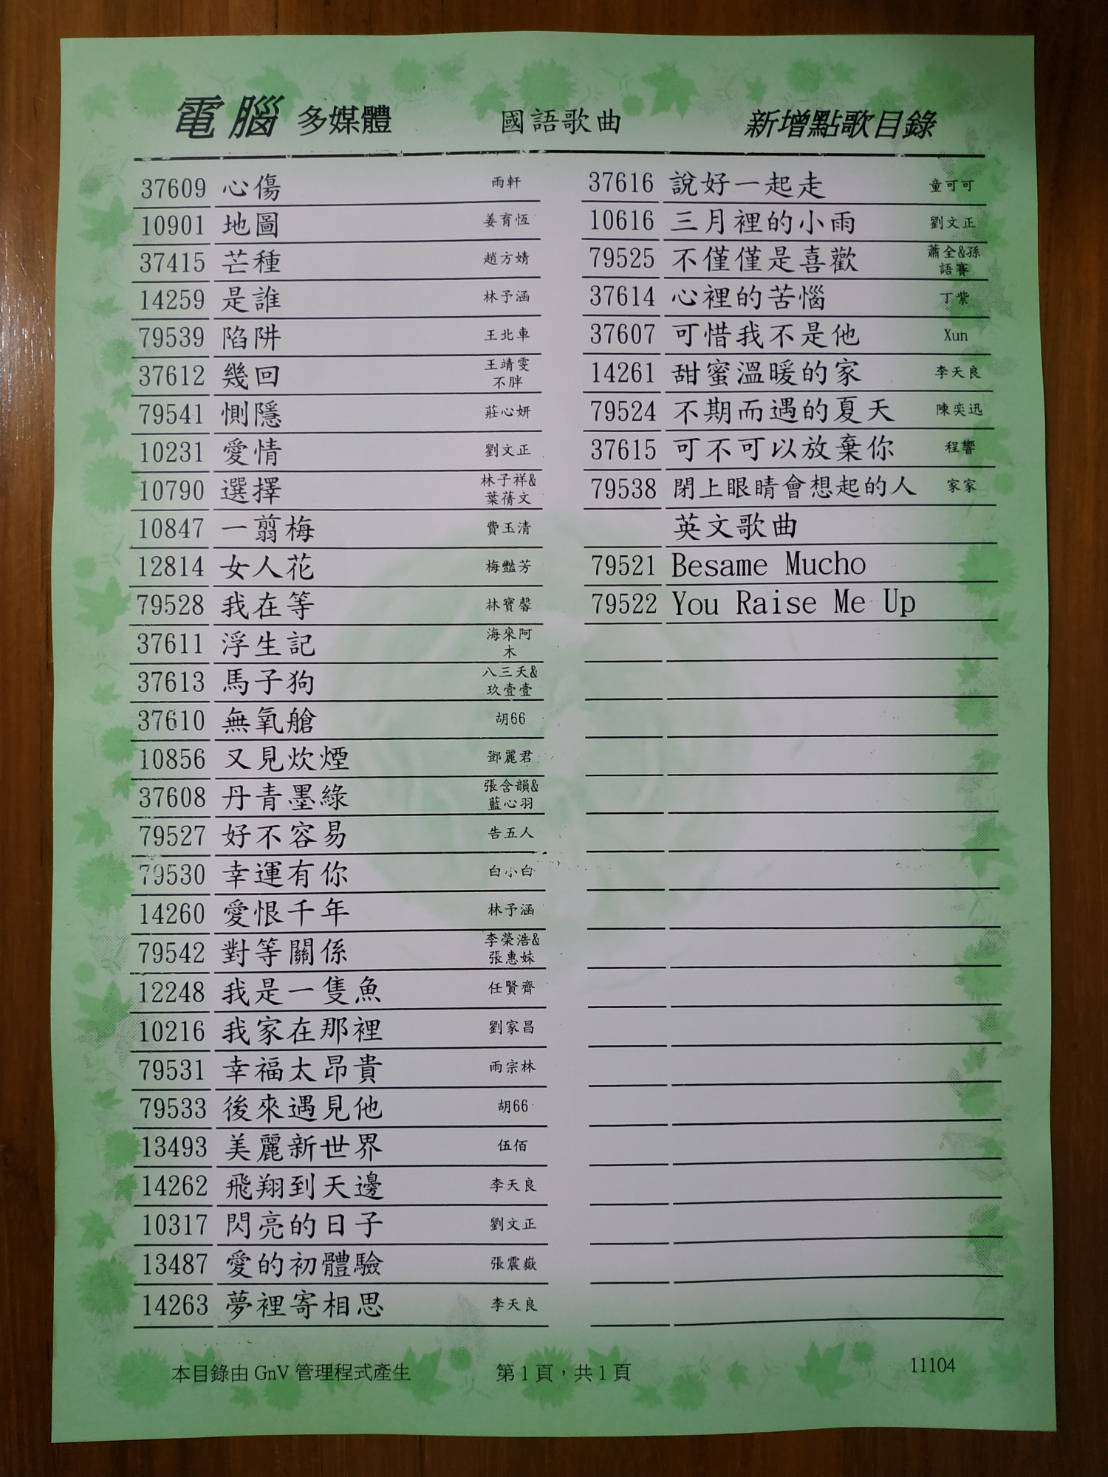 電腦 多媒體 國語歌曲 新增點歌目錄
37609 心傷 雨軒
10901 地圖 姜育恆
37415 芒種 趙方婧
14259 是誰 林予涵
79539 陷阱 王北車
37612 幾回 王靖雯
不胖
79541 惻隱 莊心妍
10231 愛情 劉文正
10790 選擇 林子祥&
葉蒨文
10847 一翦梅 費玉清
12814 女人花 梅艷芳
79528 我在等 林寶馨
37611 浮生記 海來阿
木
37613 馬子狗 八三夭&
玖壹壹
37610 無氧艙 胡66
10856 又見炊煙 鄧麗君
37608 丹青墨綠 張含韻&
藍心羽
79527 好不容易 告五人
79530 幸運有你 白小白
14260 愛恨千年 林予涵
79542 對等關係 李榮浩&
張惠妹
12248 我是一隻魚 任賢齊
10216 我家在那裡 劉家昌
79531 幸福太昂貴 雨宗林
79533 後來遇見他 胡66
13493 美麗新世界 伍佰
14262 飛翔到天邊 李天良
10317 閃亮的日子 劉文正
13487 愛的初體驗 張震嶽
14263 夢裡寄相思 李天良
37616 說好一起走 童可可
10616 三月裡的小雨 劉文正
79525 不僅僅是喜歡 蕭全&孫
語賽
37614 心裡的苦惱 丁紫
37607 可惜我不是他 Xun
14261 甜蜜溫暖的家 李天良
79524 不期而遇的夏天 陳奕迅
37615 可不可以放棄你 程響
79538 閉上眼睛會想起的人 家家
英文歌曲
79521 Besame Mucho
79522 You Raise Me Up
本目錄由 GnV 管理程式產生 第1頁，共1頁 11104